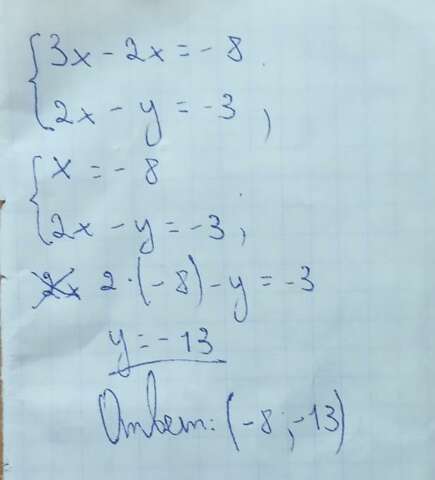 3x - 2x = - 8
2x - y = -3,
x = - 8
2x - y = -3;
2 · (-8) - y = -3
y = - 13
Ответ: (-8; -13)